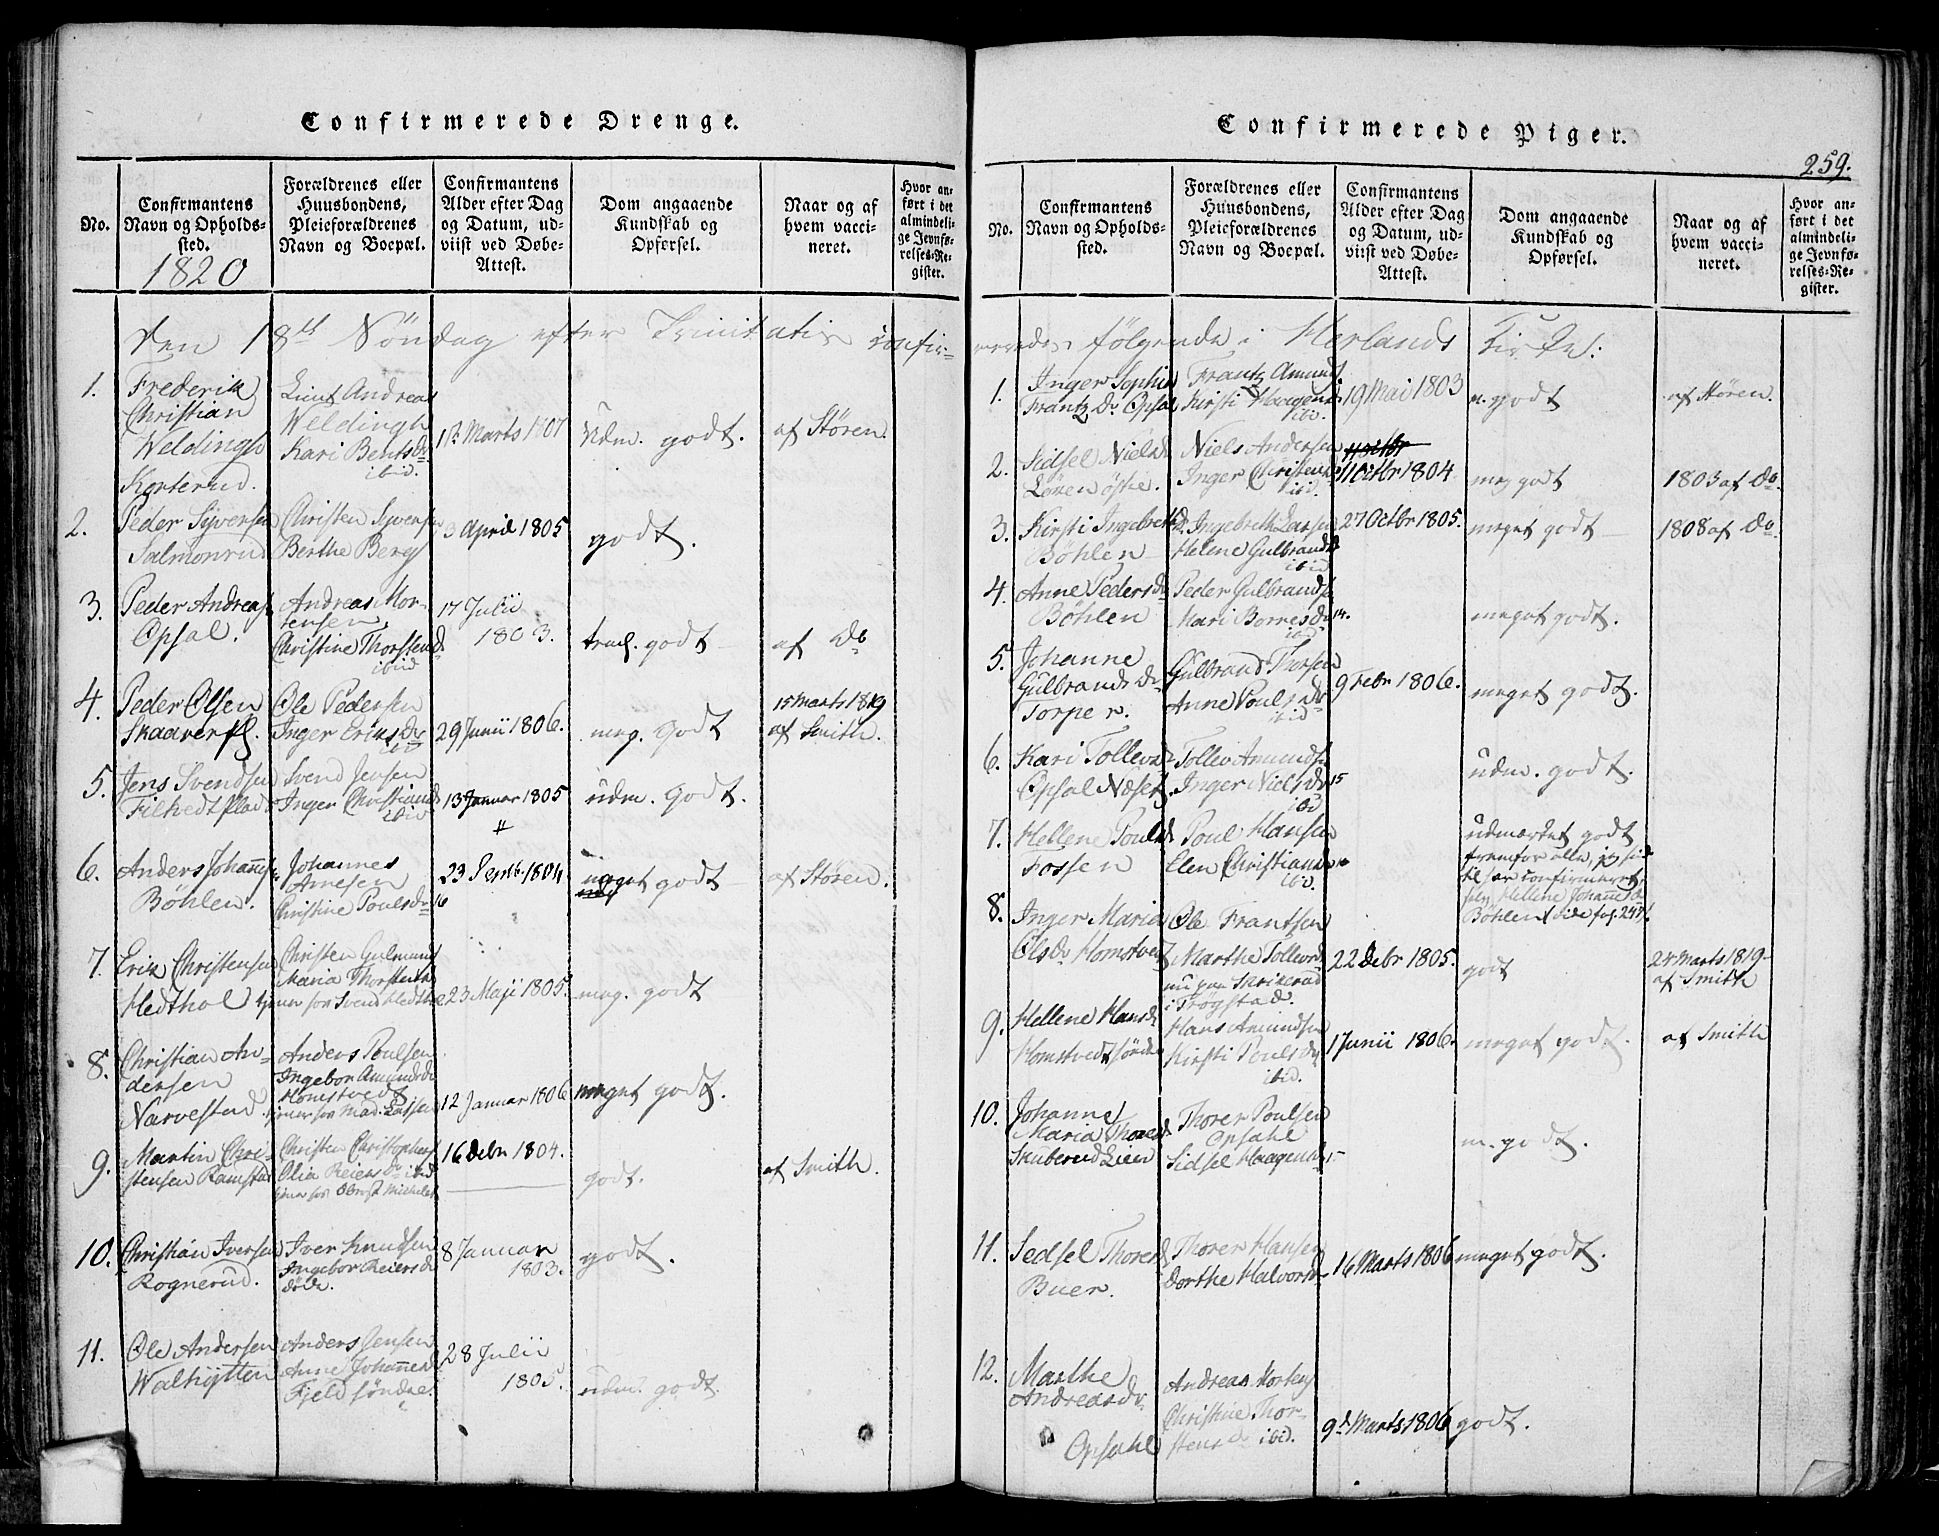 Confirmerede Drenge.
No.
Confirmantens Navn og Opholds=sted.
1820
Forældrenes eller Huusbondens, Pleieforældrenes Navn og Boepæl.
Confirmantens Alder efter Dag og Datum, ud=viist ved Døbe=Attest.
Dom angaaende Kundskab og Opførsel.
Naar og af hvem vacci=neret.
Hvor an=ført i det almindeli=ge Jevnfø=relses=Re=gister.
Den 18de Søndag efter Trinitatis confir=
1. Frederik Christian Weldingh Korterud.
Andreas Weldingh
Kari Bentsd. ibid.
Marts 1807
udm. godt.
af Støren.
2. Peder Syversen Salmonrud
Christen Syversen
Berthe Berg
3 April 1805
godt.
3. Peder Andreas Opsal.
Andreas Mor=tensen
Christine Thorstensd ibid
17 Julii 1803.
godt
af Do
4. Peder Olsen
Ole Pedersen
Inger Eriksd ibid
29 Junii 1806.
meg. godt
15 Marts 1819 af Smith.
5. Jens Svendsen
Svend Jensen
Inger Christiansd ibid
13 Januar 1805
udm. godt.
6. Anders Johannes Bøhlen.
Johannes Arnesen
Christine Poulsd 16
23 Septb. 1804
meget godt
af Støren.
7. Erik Christensen
Christen Gulmund
Maria
23 Maji 1805.
meg. godt
8. Christian An=dersen Narvestad.
Anders Poulsen
Ingebor Amundsd Homstvedt
12 Januar 1806
meget godt.
9. Martin Chri=stensen Ramstad
Christen Christophers
Olia Reiersd ibid
16 Debr 1804.
godt.
af Smith.
10. Christian Iversen Rognerud.
Iver Knudsen
Ingebor Reiersd døde.
8 Januar 1803.
godt.
11. Ole Andersen
Anders Jensen
Anne Johannesd
Fjeld søndre.
28 Julii 1805.
udm. godt.
Confirmerede Piger.
259.
No.
Confirmantens Navn og Opholds=sted.
Forældrenes eller Huusbondens, Pleieforældrenes Navn og Boepæl.
Confirmantens Alder efter Dag og Datum, ud=viist ved Døbe=Attest.
Dom angaaende Kundskab og Opførsel.
Naar og af hvem vacci=neret.
Hvor an=ført i det almindeli=ge Jevnfø=relses=Re=gister.
meredes følgende i Herlands Kirke:
1. Inger Sophia Frantz D. Opsal
Frantz Amund
Kirsti Haagensd ibid.
19 Mai 1803
m. godt
af Støren.
2. Sidsel Nielsd Løren østre.
Niels Andersen
Inger Christensd ibid.
11 Octbr
11 Octbr 1804
meg godt
1803 af Do.
3. Kirsti Ingebrethsd. Bøhlen
Ingebreth Larsen
Helene Gulbrandsd ibid
27 Octbr 1805.
meget godt
1808 af Do.
4. Anne Pedersd Bøhlen
Peder Gulbrands
Kari Bornesd ibid
14.
meget godt.
5. Johanne Gulbrandsd Torper.
Gulbrand Thorsen
Anne Poulsd ibid
9 Febr 1806.
meget godt.
6. Kari Tollevsd Opsal Næset
Tollev Amunds
Inger Nielsd ibid
15
udm. godt.
7. Hellene Poulsd Fossen
Poul Hansen
Elen Christiansd ibid.
udmærket godt fremfor alle,
Hellene Johannesd Bøhlen
8. Inger Maria Olsd. Homstvedt
Ole Frantsen
Marthe Tollevsd
nu paa Skrikerud i Trøgstad.
22 Debr 1805.
godt
24 Marts 1819 af Smith
9. Hellene Hansd Homstvedt søndre
Hans Amundsen
Kirsti Poulsd ibid.
1 Junii 1806.
meget godt.
af Smith
10. Johanne Maria Thoresd Skuberud Eien
Thorer Poulsen Opsahl
Sidsel Haagensd
m. godt.
11. Sedsel Thorersd Buer.
Thorer Hansen
Dorthe Halvorsd
16 Marts 1806
meget godt.
12. Marthe Andreasd. Opsahl
Andreas Mortens
Christine Thor=stensd ibid.
9d Marts 1806
godt.